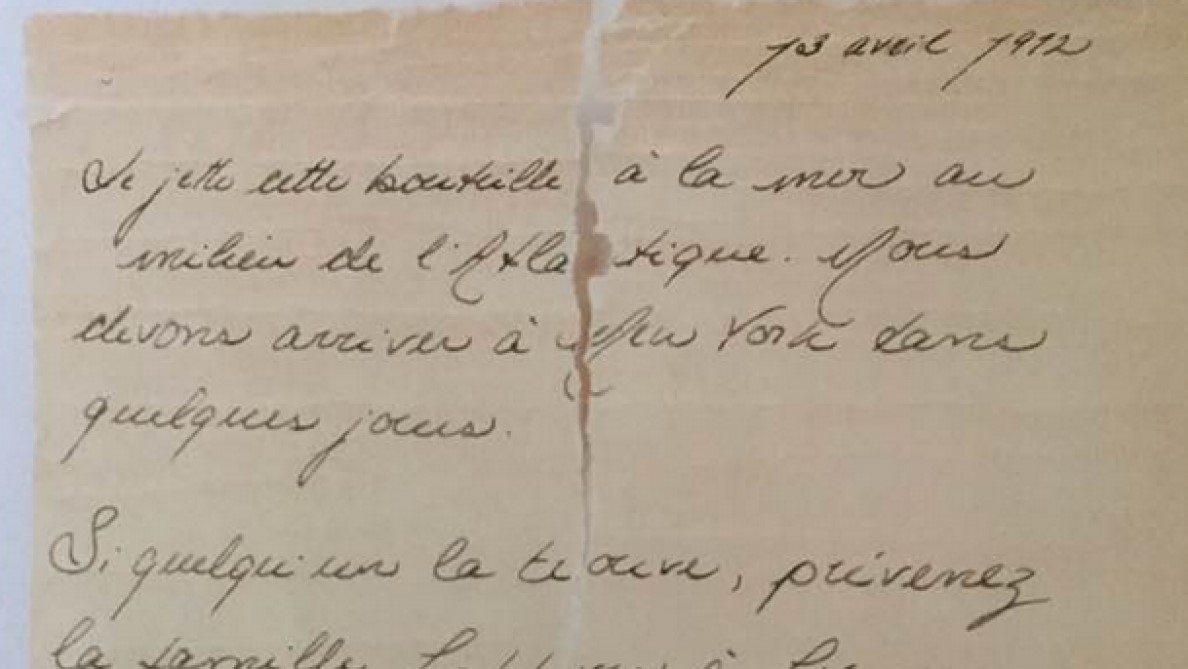 13 avril 1912
Je jette cette bouteille à la mer au
milieu de l'Atlantique. Nous
devons arriver à New York dans
quelques jours.
Si quelqu'un la trouve, prévenez
la famille à